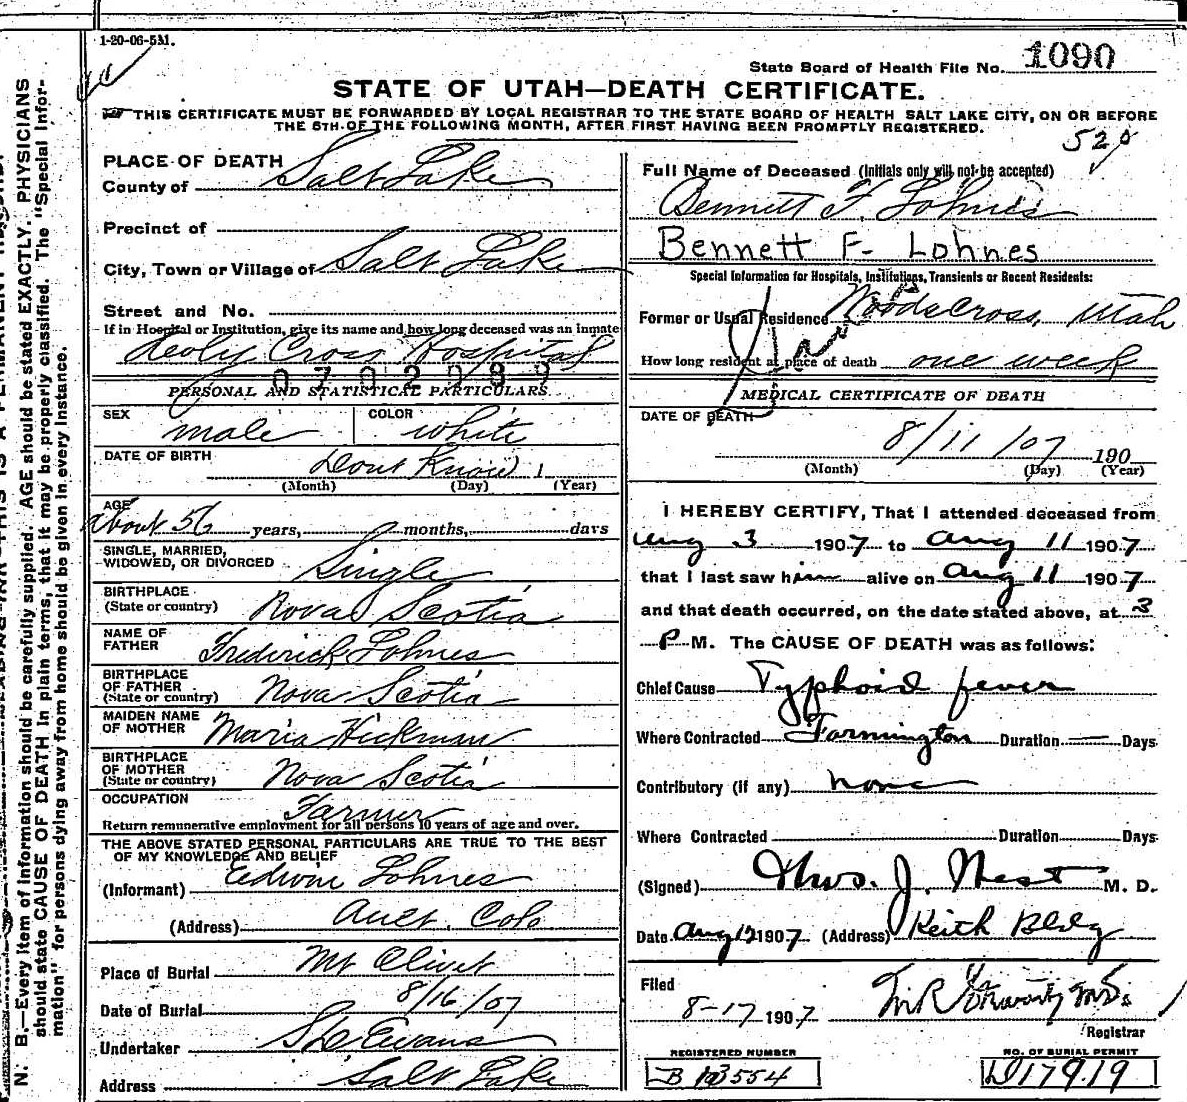 1-20-06-5M.
State Board of Health File No. 1090
STATE OF UTAH—DEATH CERTIFICATE.
THIS CERTIFICATE MUST BE FORWARDED BY LOCAL REGISTRAR TO THE STATE BOARD OF HEALTH SALT LAKE CITY, ON OR BEFORE
THE 5TH OF THE FOLLOWING MONTH, AFTER FIRST HAVING BEEN PROMPTLY REGISTERED.
PLACE OF DEATH
County of Salt Lake
Precinct of
City, Town or Village of Salt Lake
Street and No.
If in Hospital or Institution, give its name and how long deceased was an inmate
Holy Cross Hospital
PERSONAL AND STATISTICAL PARTICULARS.
SEX male COLOR white
DATE OF BIRTH Dont Know
(Month) (Day) (Year)
AGE
about 56 years, months, days
SINGLE, MARRIED,
WIDOWED, OR DIVORCED Single
BIRTHPLACE
(State or country) Nova Scotia
NAME OF
FATHER Frederick Lohnes
BIRTHPLACE
OF FATHER
(State or country) Nova Scotia
MAIDEN NAME
OF MOTHER Maria Hickman
BIRTHPLACE
OF MOTHER
(State or country) Nova Scotia
OCCUPATION Farmer
Return remunerative employment for all persons 10 years of age and over.
THE ABOVE STATED PERSONAL PARTICULARS ARE TRUE TO THE BEST
OF MY KNOWLEDGE AND BELIEF
(Informant) Edwin Lohnes
(Address) Ault. Colo
Place of Burial Mt Olivet
Date of Burial 8/16/07
Undertaker Evans
Address Salt Lake
52
Full Name of Deceased (Initials only will not be accepted)
Bennett F. Lohnes
Bennett F. Lohnes
Special Information for Hospitals, Institutions, Transients or Recent Residents:
Former or Usual Residence Woods Cross, Utah
How long resident at place of death one week
MEDICAL CERTIFICATE OF DEATH
DATE OF DEATH
8/11/07 190
(Month) (Day) (Year)
I HEREBY CERTIFY, That I attended deceased from
Aug 3 1907 to Aug 11 1907
that I last saw him alive on Aug 11 1907
and that death occurred, on the date stated above, at 3
P M. The CAUSE OF DEATH was as follows:
Chief Cause Typhoid fever
Where Contracted Farmington Duration — Days
Contributory (if any) none
Where Contracted Duration Days
(Signed) Thos. J. M. D.
Date Aug 12 1907 (Address) Keith Bldg
Filed
8-17 1907
Registrar
REGISTERED NUMBER
B 13554
NO. OF BURIAL PERMIT
D17919
N. B.—Every item of information should be carefully supplied. AGE should be stated EXACTLY. PHYSICIANS
should state CAUSE OF DEATH in plain terms, that it may be properly classified. The "Special Infor-
mation" for persons dying away from home should be given in every instance.